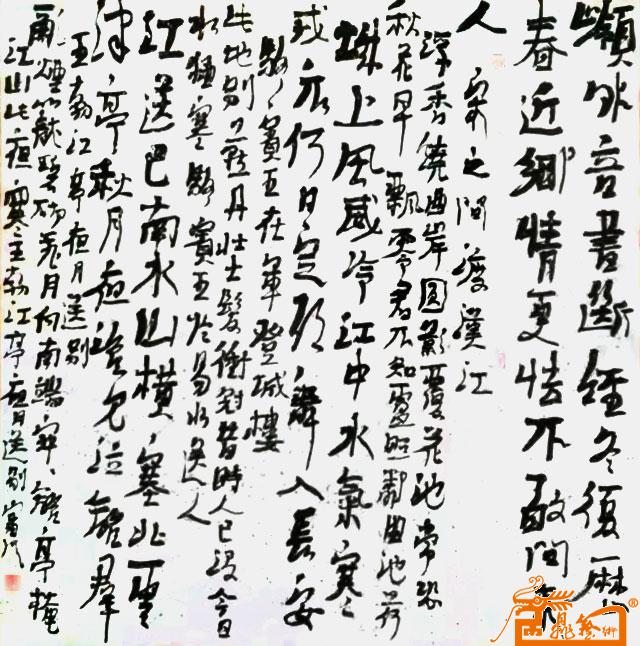 嶺外音書斷經冬復歷
春近鄉情更怯不敢問來
人 宋之問渡漢江
浮香繞曲岸圓影覆花池常恐
秋花早飄零君不知盧照鄰曲池荷
城上風威冷江中水氣寒
戎衣何日定歌舞入長安
駱賓王在軍登城樓
此地別燕丹壯士髮衝冠昔時人已没今日
水猶寒駱賓王於易水送人
江送巴南水山橫塞北雲
津亭秋月夜誰見泣離羣
王勃江亭夜月送別
亂煙籠碧砌飛月向南端寂寂離亭掩
江山此夜寒王勃江亭夜月送別